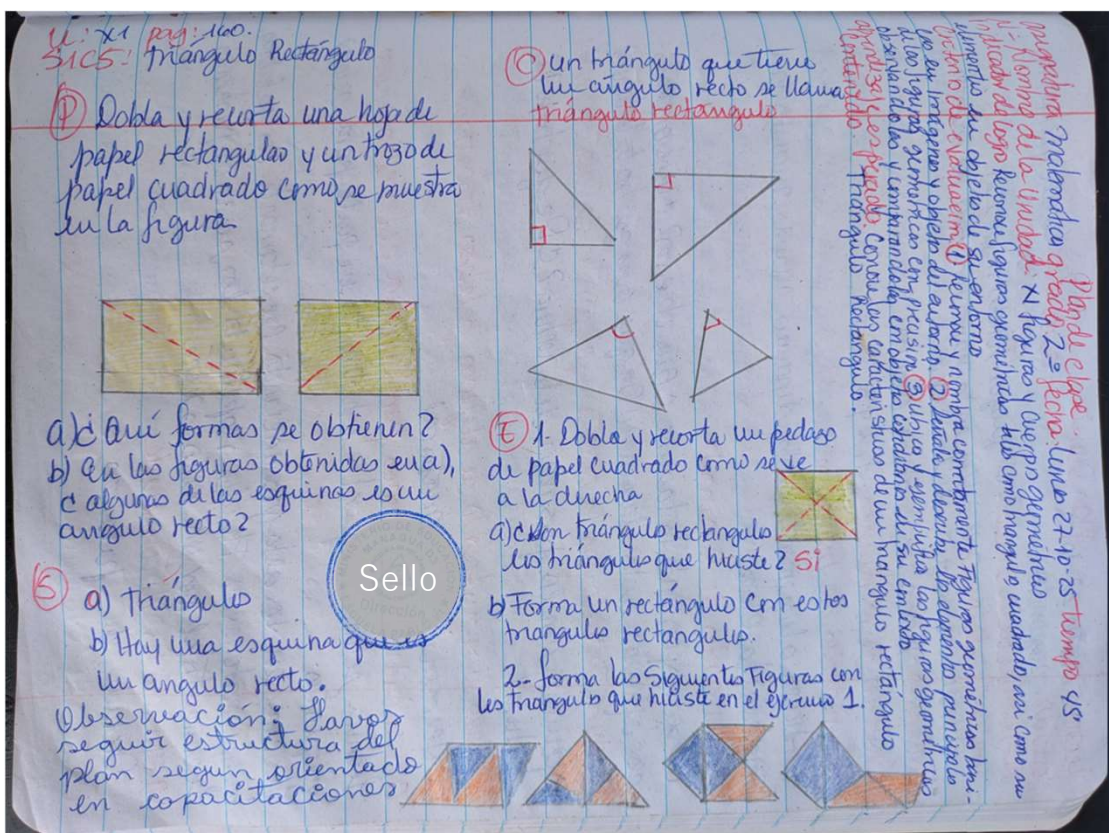 U: XI pag: 160.
S1C5: Triángulo Rectángulo
P Dobla y recorta una hoja de
papel rectangular y un trozo de
papel cuadrado como se muestra
en la figura
a) ¿Qué formas se obtienen?
b) En las figuras obtenidas en a),
¿ algunas de las esquinas es un
angulo recto?
S a) triángulo
b) Hay una esquina que es
un angulo recto.
Observación: Favor
seguir estructura del
plan segun orientado
en capacitaciones
Sello
C un triángulo que tiene
un ángulo recto se llama
triángulo rectangulo
E 1- Dobla y recorta un pedazo
de papel cuadrado como se ve
a la derecha
a) ¿Son triángulo rectangulo
los triángulos que hiciste? Si
b) Forma un rectángulo con estos
triangulos rectangulos.
2- forma las Siguientes Figuras con
los triangulo que hiciste en el ejercicio 1.
Plan de clase
Asignatura Matemática grado: 2º fecha: lunes 27-10-25 tiempo 45'
N- Nombre de la Unidad: XI figuras y cuerpos geometricos
Indicador de logro Reconoce figuras geométricas tales como triangulo, cuadrado, así como sus
elementos en objeto de su entorno
Criterio de evaluación: 1 Reconoce y nombra correctamente figuras geométricas
en imágenes y objetos del entorno. 2 y describe los elementos principales
de las figuras geométricas con precisión 3 Ubica y ejemplifica las figuras geométricas
observandolas y comparandolas en objetos cotidianos de su entorno
Aprendizaje esperado: Conoce las caracteristicas de un triangulo rectángulo
Contenido Triángulo Rectángulo.